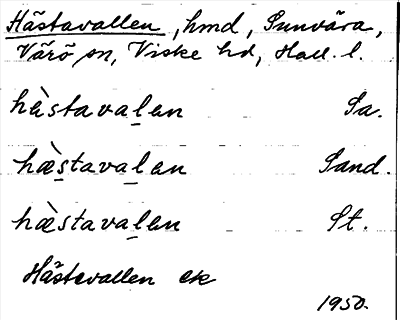 Hästavallen, hmd, Sunvära,
Värö sn, Viske hd, Hall. l.
hæ̀stavaḷan Sa.
hæ̀ṣtavaḷan Sand.
hæ̀stavaḷan St.
Hästevallen ek
1950.